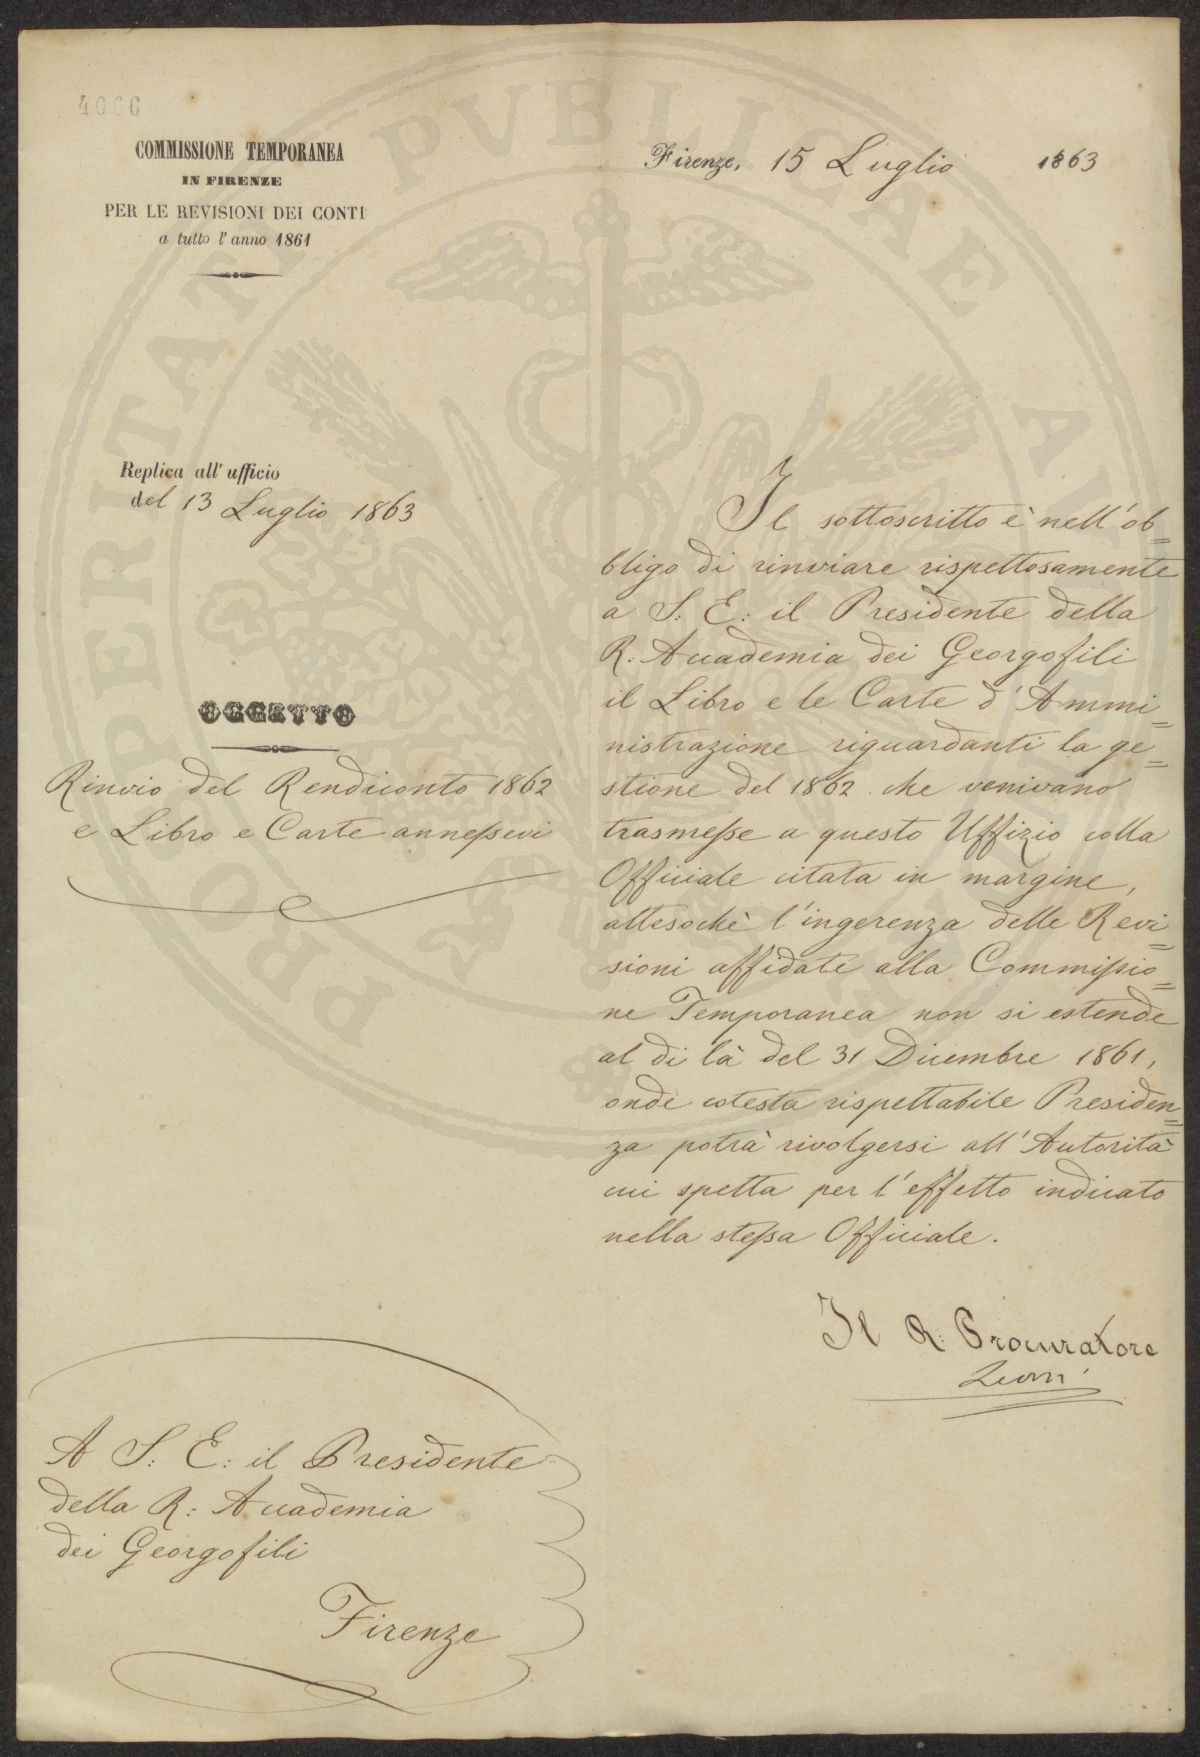 4006
COMMISSIONE TEMPORANEA
IN FIRENZE
PER LE REVISIONI DEI CONTI
a tutto l'anno 1861
Firenze, 15 Luglio 1863
Replica all'ufficio
del 13 Luglio 1863
OGGETTO
Rinvio del Rendiconto 1862
e Libro e Carte annessevi
Il sottoscritto è nell'ob=
bligo di rinviare rispettosamente
a S: E: il Presidente della
R: Accademia dei Georgofili
il Libro e le Carte d'Ammi=
nistrazione riguardanti la ge=
stione del 1862. che venivano
trasmesse a questo Uffizio colla
Officiale citata in margine,
attesochè l'ingerenza delle Revi=
sioni affidate alla Commissio=
ne Temporanea non si estende
al di là del 31 Dicembre 1861,
onde cotesta rispettabile Presiden=
za potrà rivolgersi all'Autorità
cui spetta per l'effetto indicato
nella stessa Officiale.
Il R: Procuratore
A S: E: il Presidente
della R: Accademia
dei Georgofili
Firenze
PROSPERITATI PVBLICAE AVGENDAE